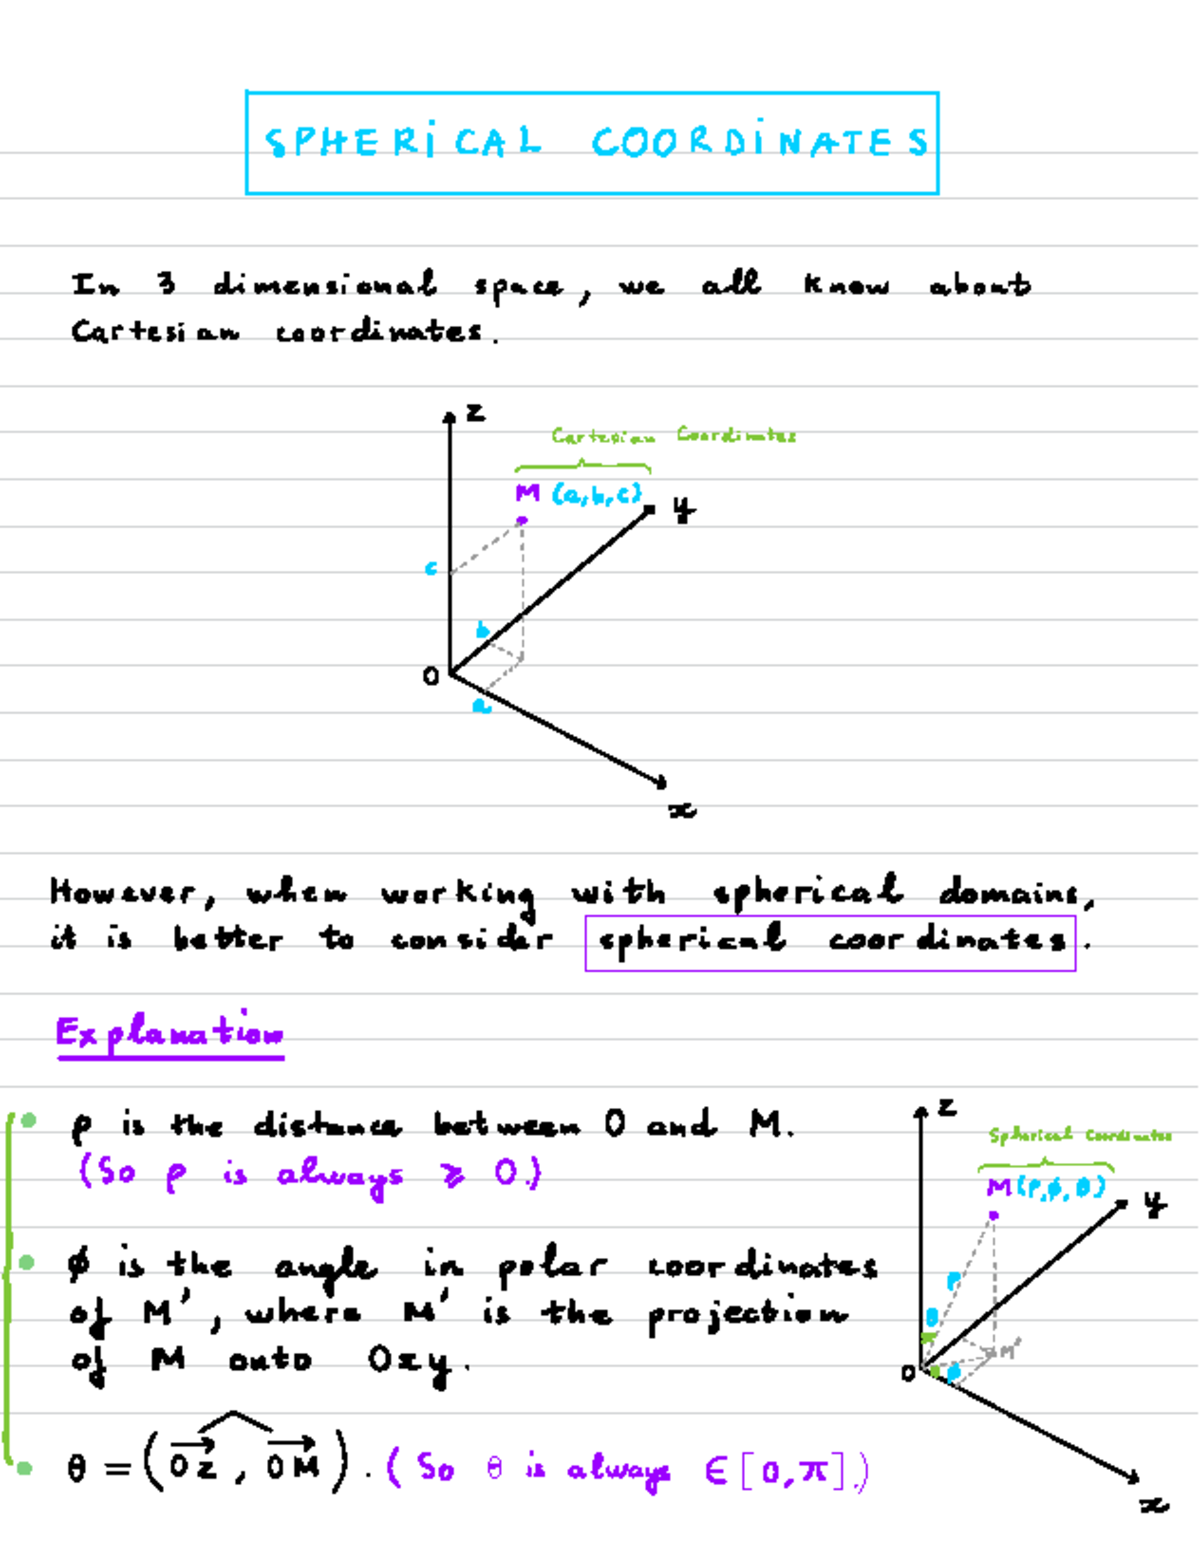 SPHERICAL COORDINATES
In 3 dimensional space, we all know about
Cartesian coordinates.
z
Cartesian Coordinates
M (a,b,c)
y
c
b
O
a
x
However, when working with spherical domains,
it is better to consider spherical coordinates.
Explanation
• ρ is the distance between O and M.
(So ρ is always ⩾ 0.)
• ϕ is the angle in polar coordinates
of M', where M' is the projection
of M onto Oxy.
• θ = (Oz, OM). (So θ is always ∈ [0,π].)
z
Spherical Coordinates
M(ρ,ϕ,θ)
y
ρ
θ
M'
O
ϕ
x